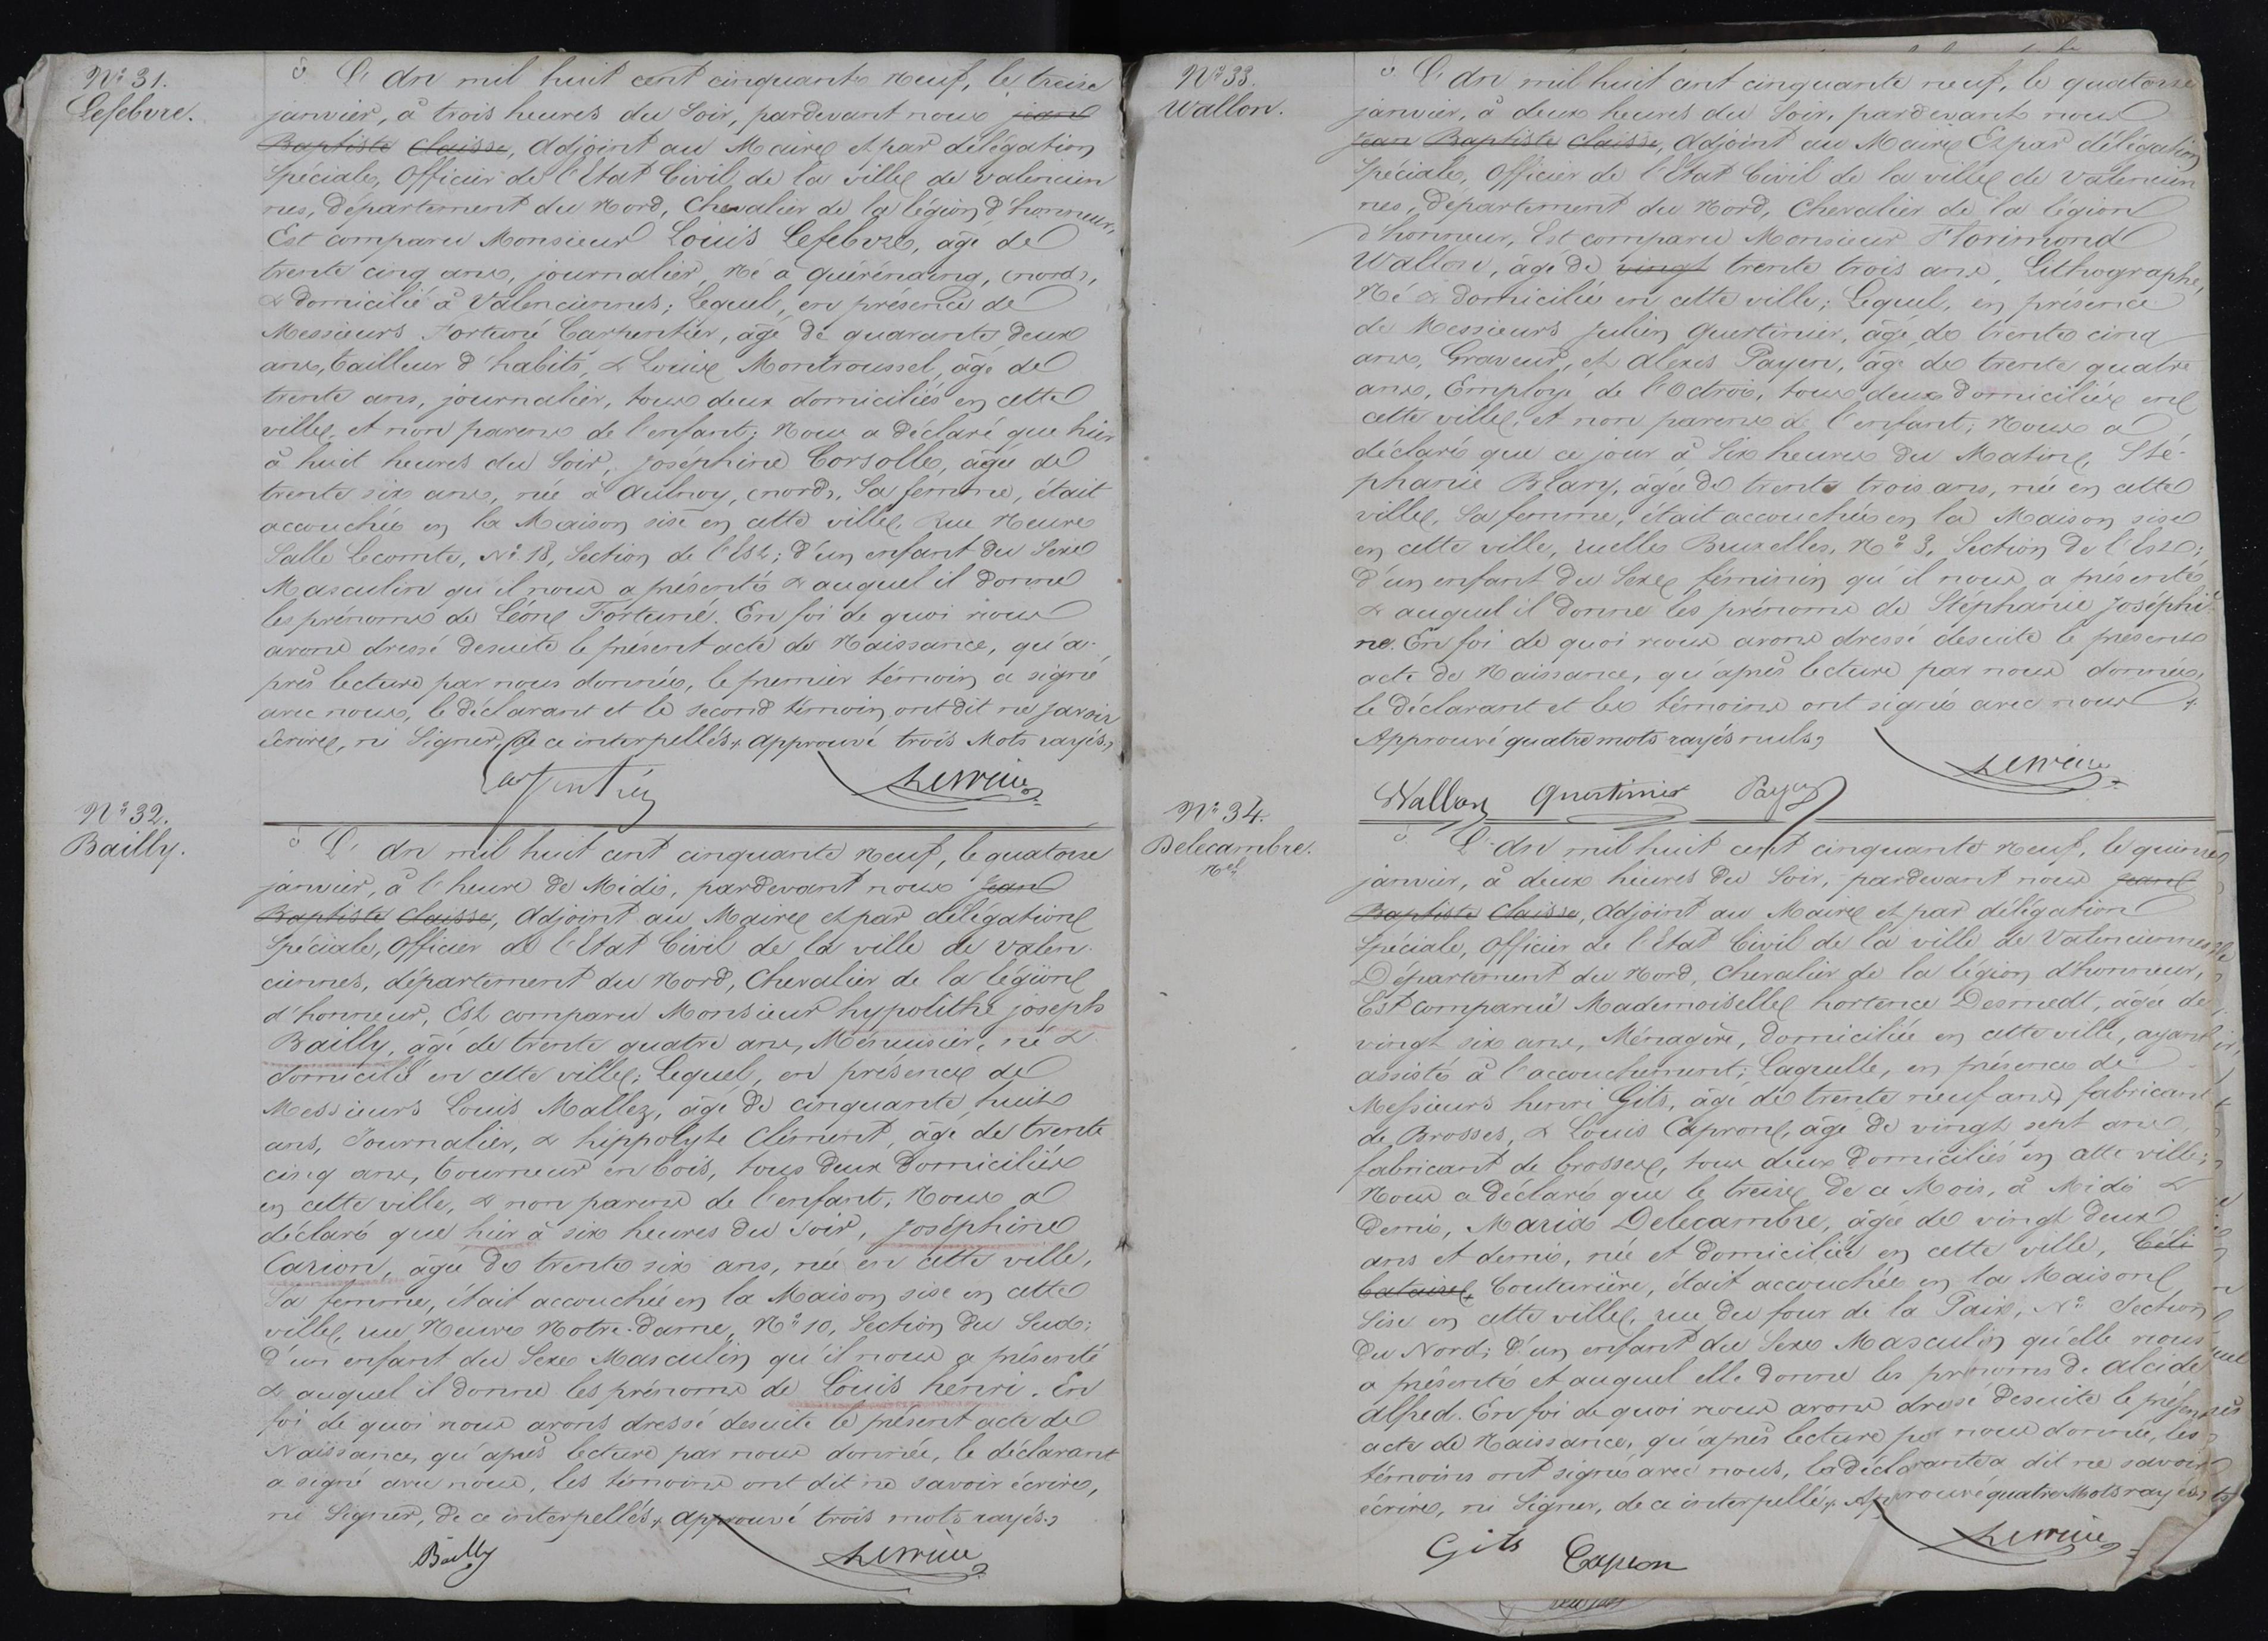 Nº 31.
Lefebvre.
L'an mil huit cent cinquante neuf, le treize
janvier, à trois heures du Soir, pardevant nous jean
Baptiste Claisse, Adjoint au Maire et par délégation
Spéciale, Officier de l'Etat Civil de la ville de Valencien
nes, département du Nord, Chevalier de la légion d'honneur,
Est comparu Monsieur Louis Lefebvre, âgé de
trente cinq ans, journalier, Né à Quérénaing, (nord),
& domicilié à Valenciennes; Lequel, en présence de
Messieurs Fortuné Carpentier, âgé de quarante deux
ans, tailleur d'habits, & Louis Montroussel, âgé de
trente ans, journalier, tous deux domiciliés en cette
ville, et non parens de l'enfant; Nous a déclaré que hier
à huit heures du Soir, Joséphine Corsolle, âgée de
trente six ans, née à Aulnoy, (nord), Sa femme, était
accouchée en la Maison sise en cette ville, Rue Neuve
Salle Lecomte, Nº 18, Section de l'Est; d'un enfant du Sexe
Masculin qu'il nous a présenté & auquel il donne
les prénoms de Léon Fortuné. En foi de quoi nous
avons dressé desuite le présent acte de Naissance, qu'a-
près lecture par nous donnée, le premier témoin a signé
avec nous, le déclarant et le second témoin ont dit ne savoir
écrire, ni Signer, de ce interpellés, approuvé trois Mots rayés,
Carpentier
Nº 32.
Bailly.
L'an mil huit cent cinquante Neuf, le quatorze
janvier, à l'heure de Midi, pardevant nous Jean
Baptiste Claisse, Adjoint au Maire et par délégation
Spéciale, Officier de l'Etat Civil de la ville de Valen
ciennes, département du Nord, Chevalier de la légion
d'honneur, Est comparu Monsieur hypolithe joseph
Bailly, âgé de trente quatre ans, Menuisier, né &
domicilié en cette ville; Lequel, en présence de
Messieurs Louis Mallez, âgé de cinquante huit
ans, Journalier, & hippolyte Clément, âgé de trente
cinq ans, tourneur en bois, tous deux domiciliés
en cette ville, & non parens de l'enfant; Nous a
déclaré que hier à six heures du Soir, Joséphine
Carion, âgée de trente six ans, née en cette ville,
Sa femme, était accouchée en la Maison sise en cette
ville, rue Neuve Notre-Dame, Nº 10, Section du Sud;
d'un enfant du Sexe Masculin qu'il nous a présenté
& auquel il donne les prénoms de Louis henri. En
foi de quoi nous avons dressé desuite le présent acte de
Naissance, qu'après lecture par nous donnée, le déclarant
a signé avec nous, les témoins ont dit ne savoir écrire,
ni Signer, de ce interpellés, approuvé trois mots rayés,
Bailly
Nº 33.
Wallon.
L'an mil huit cent cinquante neuf, le quatorze
janvier, à deux heures du Soir, pardevant nous
Jean Baptiste Claisse, Adjoint au Maire Et par délégation
Spéciale, Officier de l'Etat Civil de la ville de Valencien
nes, département du Nord, Chevalier de la légion
d'honneur, Est comparu Monsieur Florimond
Wallon, âgé de vingt trente trois ans, Lithographe,
Né & domicilié en cette ville; Lequel, en présence
de Messieurs Julien Quertinier, âgé de trente cinq
ans, Graveur, et Alexis Payen, âgé de trente quatre
ans, Employé de l'Octroi, tous deux domiciliés en
cette ville, et non parens de l'enfant; Nous a
déclaré que ce jour à Six heures du Matin, Sté-
phanie Blary, âgée de trente trois ans, née en cette
ville, Sa femme, était accouchée en la Maison sise
en cette ville, ruelle Bruxelles, Nº 3, Section de l'Est;
d'un enfant du Sexe féminin qu'il nous a présenté
& auquel il donne les prénoms de Stéphanie Joséphi-
ne. En foi de quoi nous avons dressé desuite le présent
acte de Naissance, qu'après lecture par nous donnée,
le déclarant et les témoins ont signé avec nous
Approuvé quatre mots rayés nuls,
Wallon Quertinier Payen
Nº 34.
Delecambre.
Nel
L'an mil huit cent cinquante Neuf, le quinze
janvier, à deux heures du Soir, pardevant nous Jean
Baptiste Claisse, Adjoint au Maire et par délégation
Spéciale, Officier de l'Etat Civil de la ville de Valenciennes
Département du Nord, Chevalier de la légion d'honneur,
Est comparue Mademoiselle hortence Desmedt, âgée de
vingt six ans, Ménagère, domiciliée en cette ville, ayant
assisté à l'accouchement; Laquelle, en présence de
Messieurs henri Gits, âgé de trente neuf ans, fabricant
de Brosses, & Louis Capron, âgé de vingt sept ans,
fabricant de brosses, tous deux domiciliés en cette ville;
Nous a déclaré que le treize de ce Mois, à Midi &
demi, Maria Delecambre, âgée de vingt deux
ans et demi, née et domiciliée en cette ville, Céli
bataire, Couturière, était accouchée en la Maison
Sise en cette ville, rue du four de la Paix, Nº Section
du Nord; d'un enfant du Sexe Masculin qu'elle nous
a présenté et auquel elle donne les prénoms de Alcide
Alfred. En foi de quoi nous avons dressé desuite le présent
acte de Naissance, qu'après lecture par nous donnée, les
témoins ont signé avec nous, la déclarante a dit ne savoir
écrire, ni Signer, de ce interpellé, Approuvé quatre Mots rayés,
Gits Capron